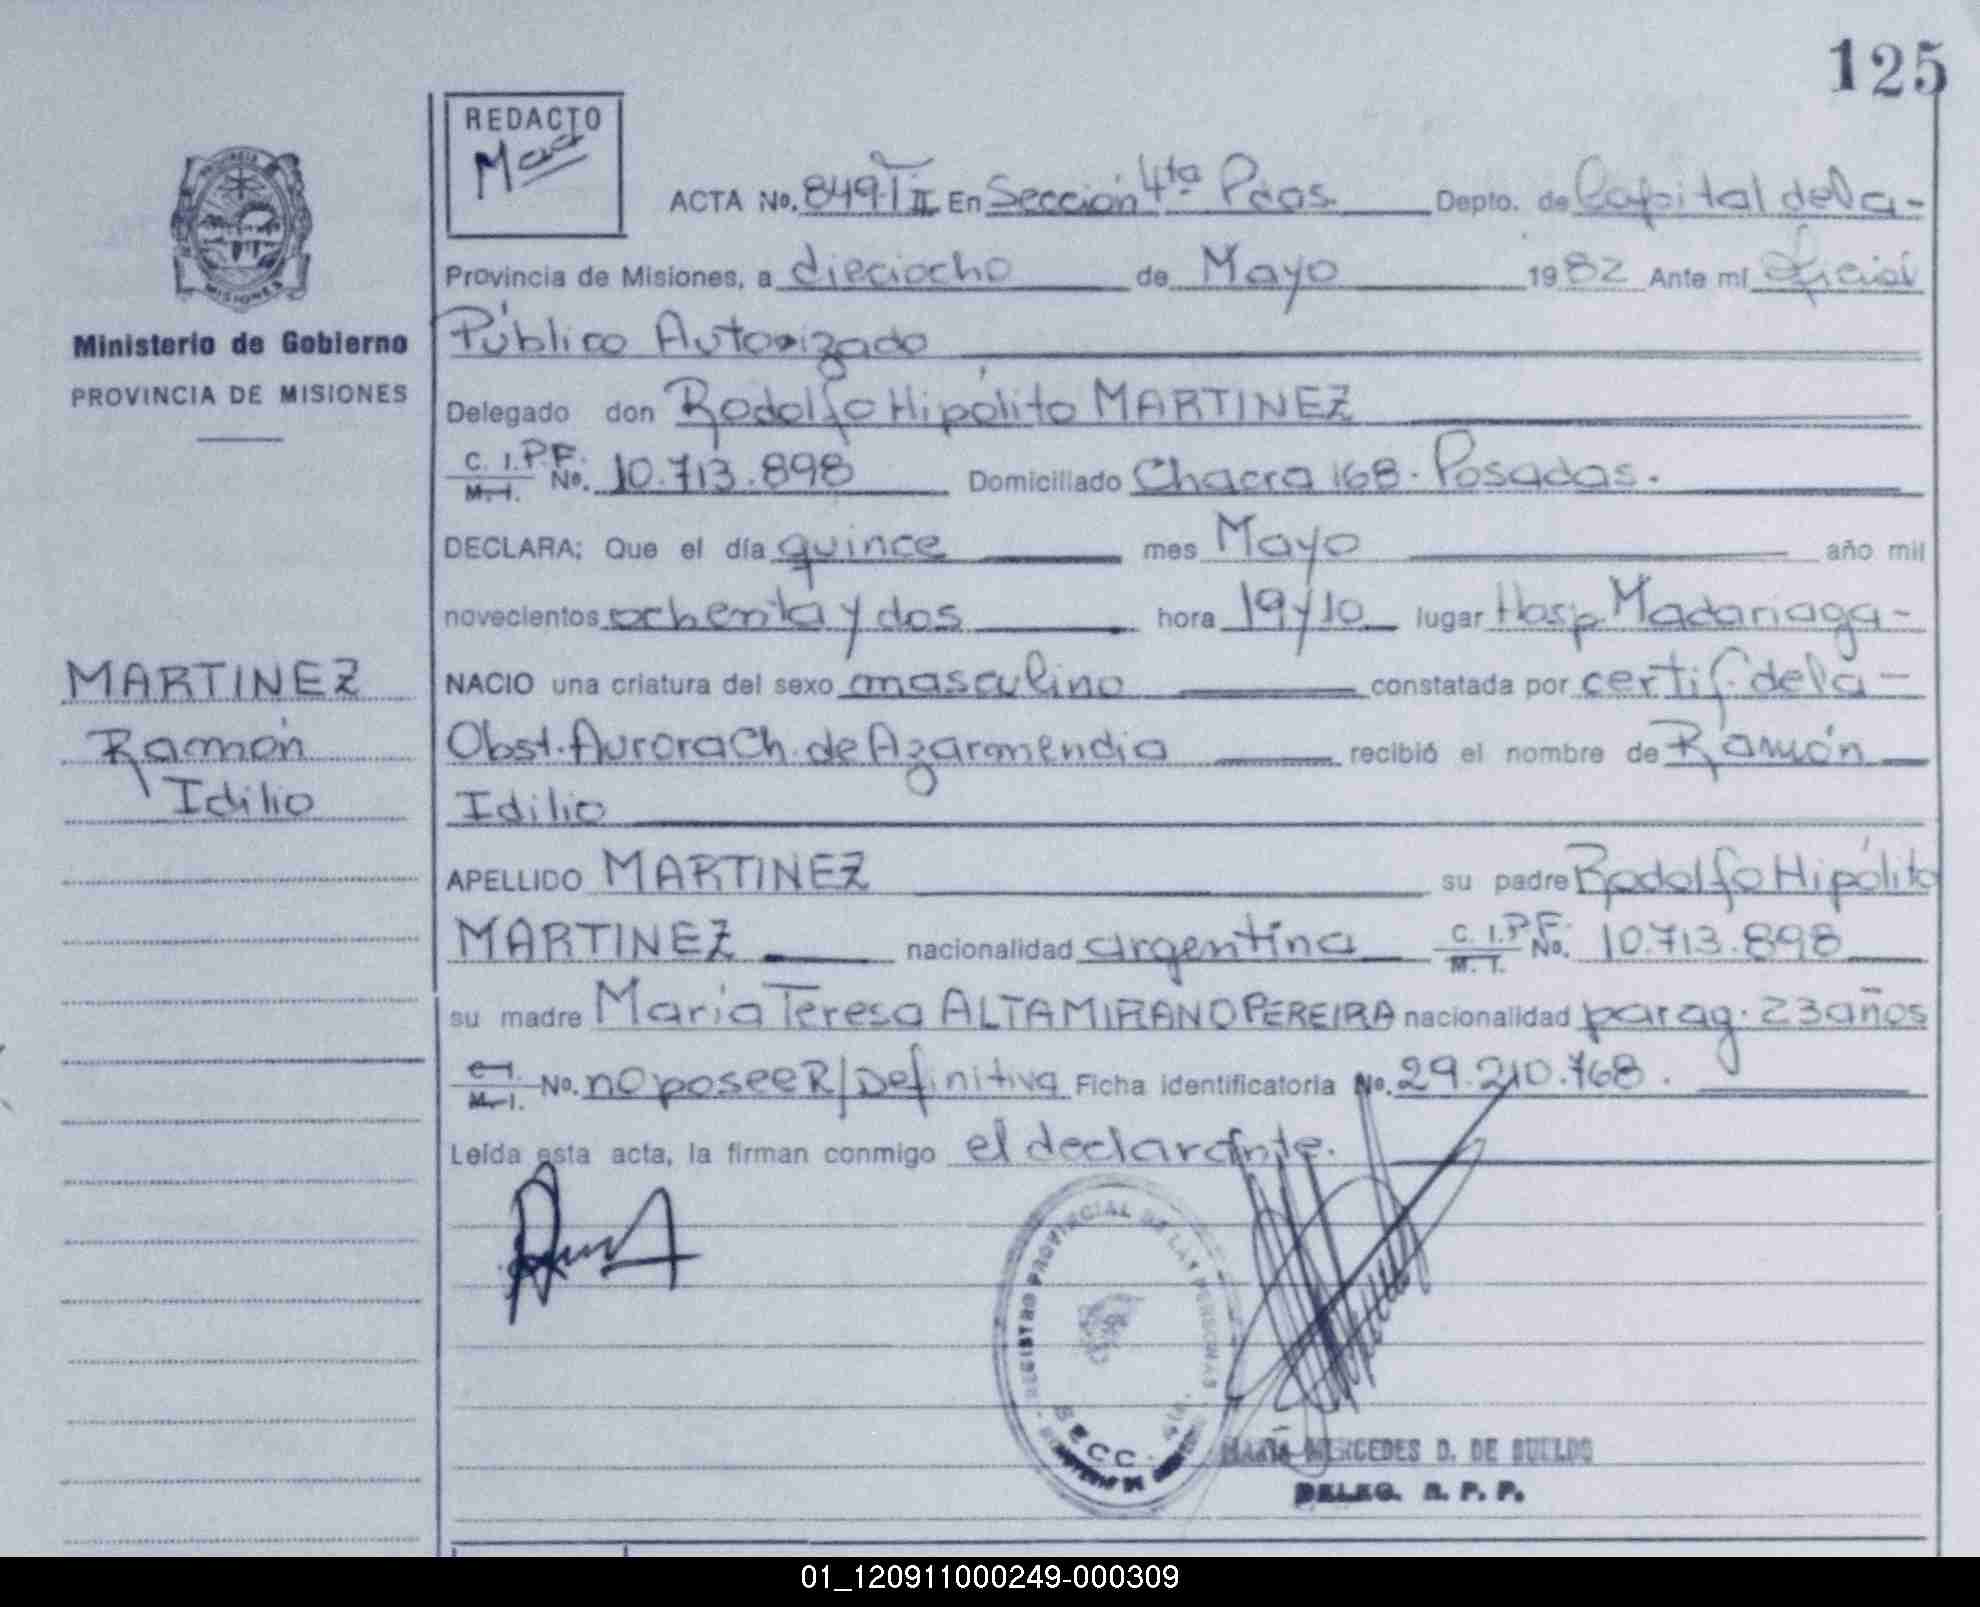 125
REDACTO
ACTA No. 849-T II En Sección 4ta Pdas. Depto. de Capital de la -
Provincia de Misiones, a dieciocho de Mayo 1982 Ante mí Oficial
Ministerio de Gobierno
PROVINCIA DE MISIONES
Público Autorizado
Delegado don Rodolfo Hipólito MARTINEZ
C. I. P.F. M. I. No. 10.713.898 Domiciliado Chacra 168. Posadas.
DECLARA; Que el día quince mes Mayo año mil
novecientos ochenta y dos hora 19 y 10 lugar Hosp. Madariaga -
MARTINEZ
Ramón
Idilio
NACIO una criatura del sexo masculino constatada por certif. de la -
Obst. Aurora Ch. de Azarmendia recibió el nombre de Ramón
Idilio
APELLIDO MARTINEZ su padre Rodolfo Hipólito
MARTINEZ nacionalidad argentina C. I. P.F. M. I. No. 10.713.898
su madre María Teresa ALTAMIRANO PEREIRA nacionalidad parag. 23 años
C. I. M. I. No. no posee R/Definitiva Ficha identificatoria No. 29.210.768.
Leída esta acta, la firman conmigo el declarante.
REGISTRO PROVINCIAL DE LAS PERSONAS
SECC. 4ta.
MARIA MERCEDES D. DE SUELDO
DELEG. R. P. P.
MISIONES
01_120911000249-000309